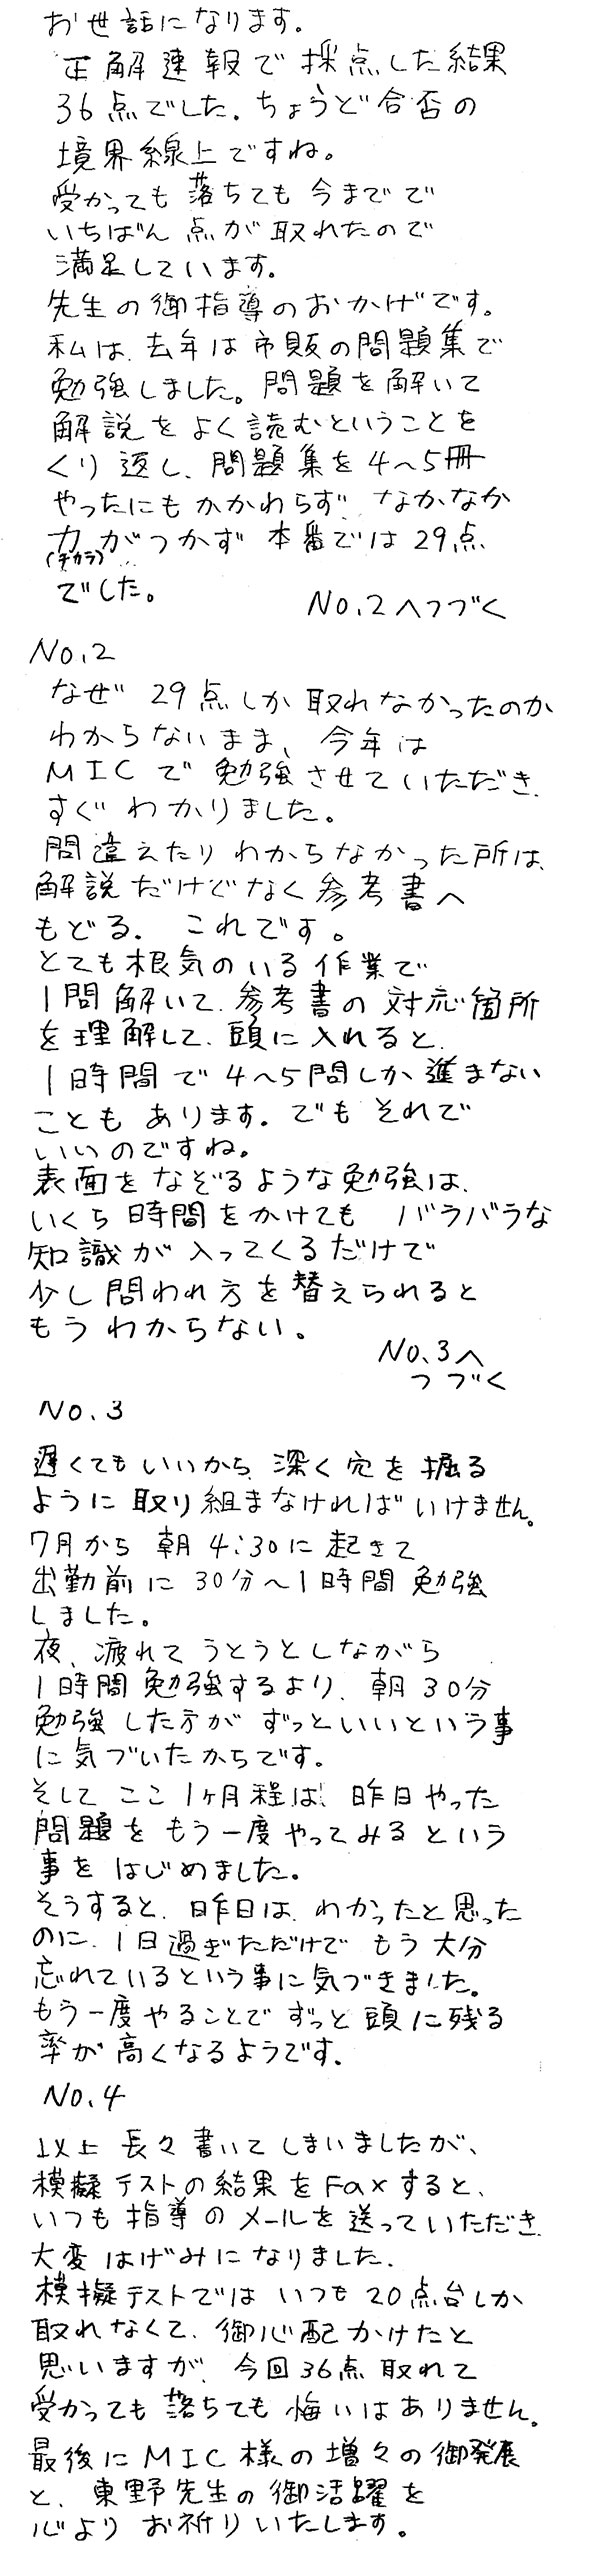 お世話になります。
正解速報で採点した結果
36点でした。ちょうど合否の
境界線上ですね。
受かっても落ちても今までで
いちばん点が取れたので
満足しています。
先生の御指導のおかげです。
私は、去年は市販の問題集で
勉強しました。問題を解いて
解説をよく読むということを
くり返し、問題集を4〜5冊
やったにもかかわらず、なかなか
力がつかず本番では29点
(チカラ)
でした。
No.2へつづく
No.2
なぜ29点しか取れなかったのか
わからないまま、今年は
MICで勉強させていただき、
すぐわかりました。
間違えたりわからなかった所は、
解説だけでなく参考書へ
もどる。これです。
とても根気のいる作業で
1問解いて、参考書の対応箇所
を理解して、頭に入れると、
1時間で4〜5問しか進まない
こともあります。でもそれで
いいのですね。
表面をなぞるような勉強は、
いくら時間をかけてもバラバラな
知識が入ってくるだけで
少し問われ方を替えられると
もうわからない。
No.3へ
つづく
No.3
遅くてもいいから、深く穴を掘る
ように取り組まなければいけません。
7月から朝4:30に起きて
出勤前に30分〜1時間勉強
しました。
夜、疲れてうとうとしながら
1時間勉強するより、朝30分
勉強した方がずっといいという事
に気づいたからです。
そしてここ1ヶ月程は、昨日やった
問題をもう一度やってみるという
事をはじめました。
そうすると、昨日は、わかったと思った
のに、1日過ぎただけでもう大分
忘れているという事に気づきました。
もう一度やることでずっと頭に残る
率が高くなるようです。
No.4
以上長々書いてしまいましたが、
模擬テストの結果をFaxすると、
いつも指導のメールを送っていただき、
大変はげみになりました。
模擬テストではいつも20点台しか
取れなくて、御心配かけたと
思いますが、今回36点取れて
受かっても落ちても悔いはありません。
最後にMIC様の増々の御発展
と、東野先生の御活躍を
心よりお祈りいたします。